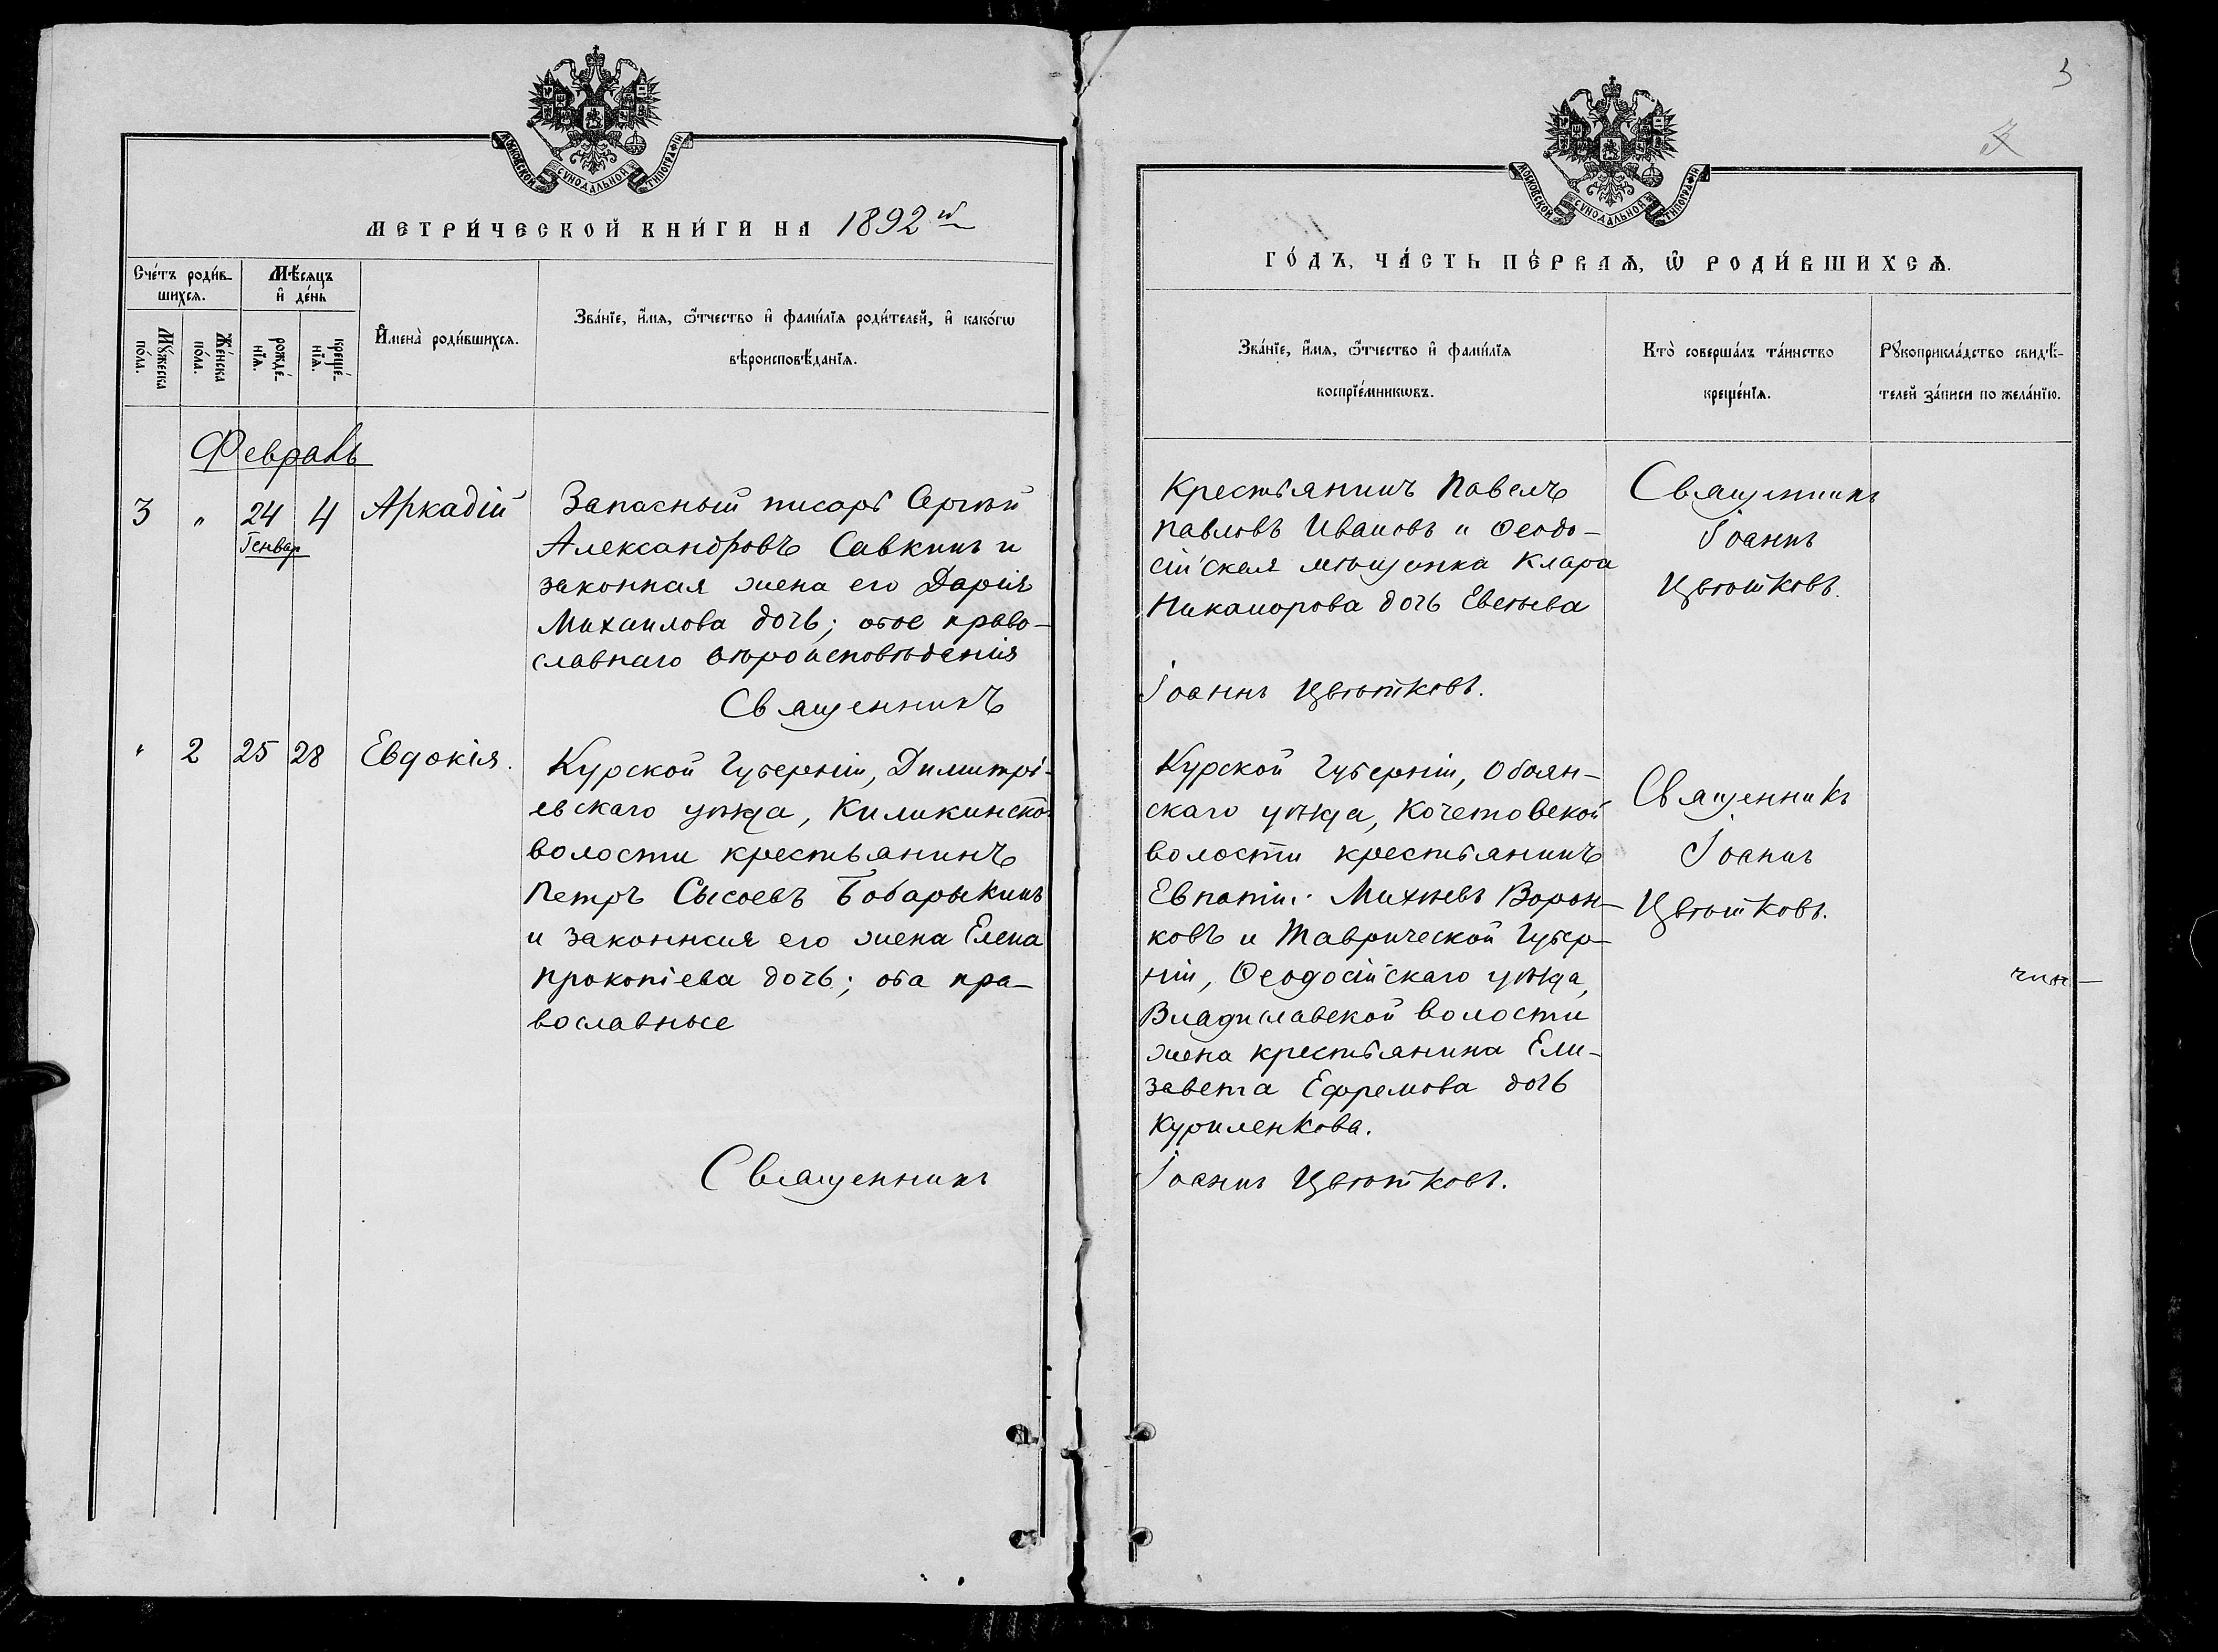 МОСКОВСКОЙ СѴНОДАЛЬНОЙ ТИПОГРАФІИ
МЕТРИ́ЧЕСКОЙ КНИ́ГИ НА 1892й
Сче́тъ роди́в-
шихсѧ.
Мѣ́сѧцъ
и҆ де́нь
И҆мена̀ роди́вшихсѧ.
Зва́нїе, и҆́мѧ, ѻ҆́тчество и҆ фами́лїѧ роди́телей, и҆ како́гѡ
вѣроисповѣ́данїѧ.
Мꙋ́жеска
по́ла.
Же́нска
по́ла.
рожде́-
нїѧ.
креще́-
нїѧ.
Февраль
3 " 24 4 Аркадій
Генвар
Запасный писарь Сергѣй
Александровъ Савкинъ и
законная жена его Дарія
Михаилова дочь; обое право-
славнаго вѣроисповѣданія
Священникъ
" 2 25 28 Евдокія.
Курской Губерніи, Димитрі-
евскаго уѣзда, Киликинской
волости крестьянинъ
Петръ Сысоевъ Бобарыкинъ
и законная его жена Елена
Прокопіева дочь; оба пра-
вославные
Священникъ
3
МОСКОВСКОЙ СѴНОДАЛЬНОЙ ТИПОГРАФІИ
ГО́ДЪ, ЧА́СТЬ ПЕ́РВАѦ, Ѡ҆ РОДИ́ВШИХСѦ.
Зва́нїе, и҆́мѧ, ѻ҆́тчество и҆ фами́лїѧ
воспрїе́мникѡвъ.
Кто̀ соверша́лъ та́инство
креще́нїѧ.
Рꙋкоприкла́дство свидѣ́-
телей за́писи по жела́нїю.
Крестьянинъ Павелъ
Павловъ Ивановъ и Ѳеодо-
сійская мѣщанка Клара
Никанорова дочь Евсѣева
Іоаннъ Цвѣтковъ.
Священникъ
Іоаннъ
Цвѣтковъ.
Курской Губерніи, Обоян-
скаго уѣзда, Кочетовской
волости крестьянинъ
Михѣевъ Ворон-
ковъ и Таврической Губер-
ніи, Ѳеодосійскаго уѣзда,
Владиславской волости
жена крестьянина Ели-
завета Ефремова дочь
Куриленкова.
Іоаннъ Цвѣтковъ.
Священникъ
Іоаннъ
Цвѣтковъ.